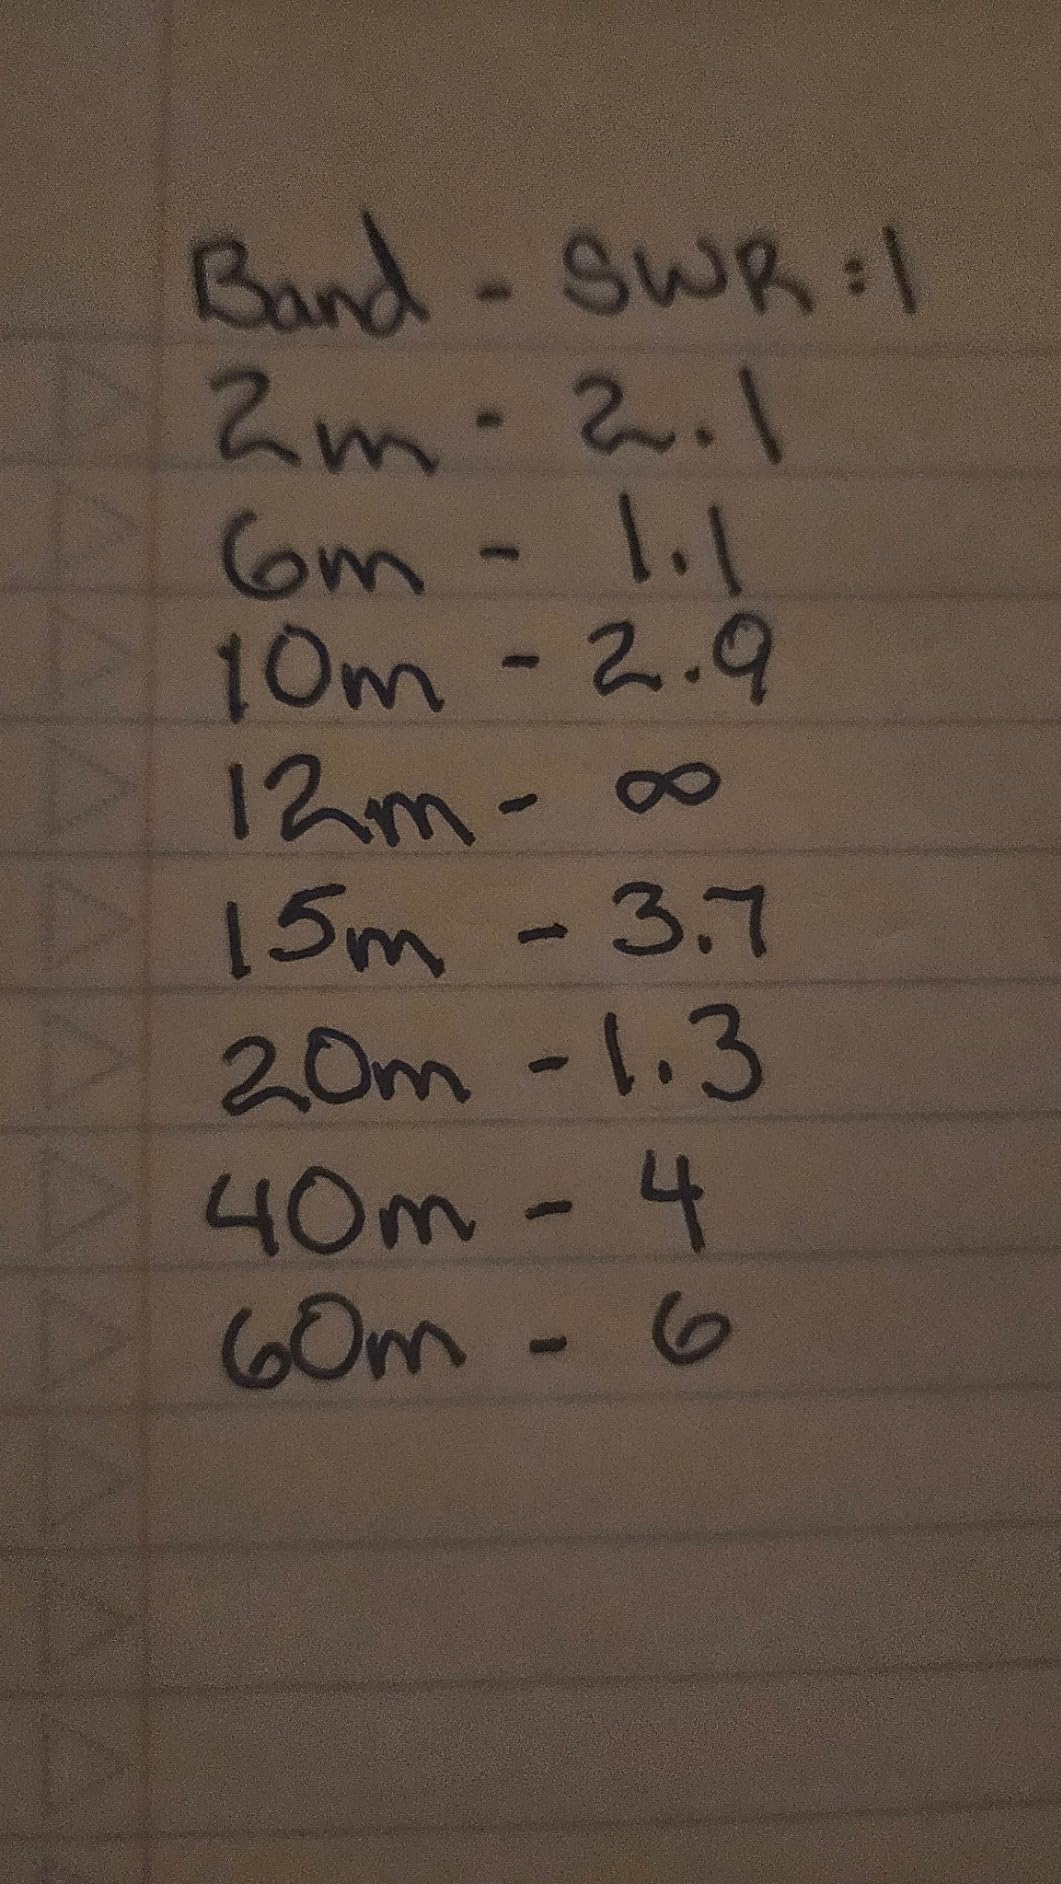 Band - SWR :1
2m - 2.1
6m - 1.1
10m - 2.9
12m - ∞
15m - 3.7
20m - 1.3
40m - 4
60m - 6